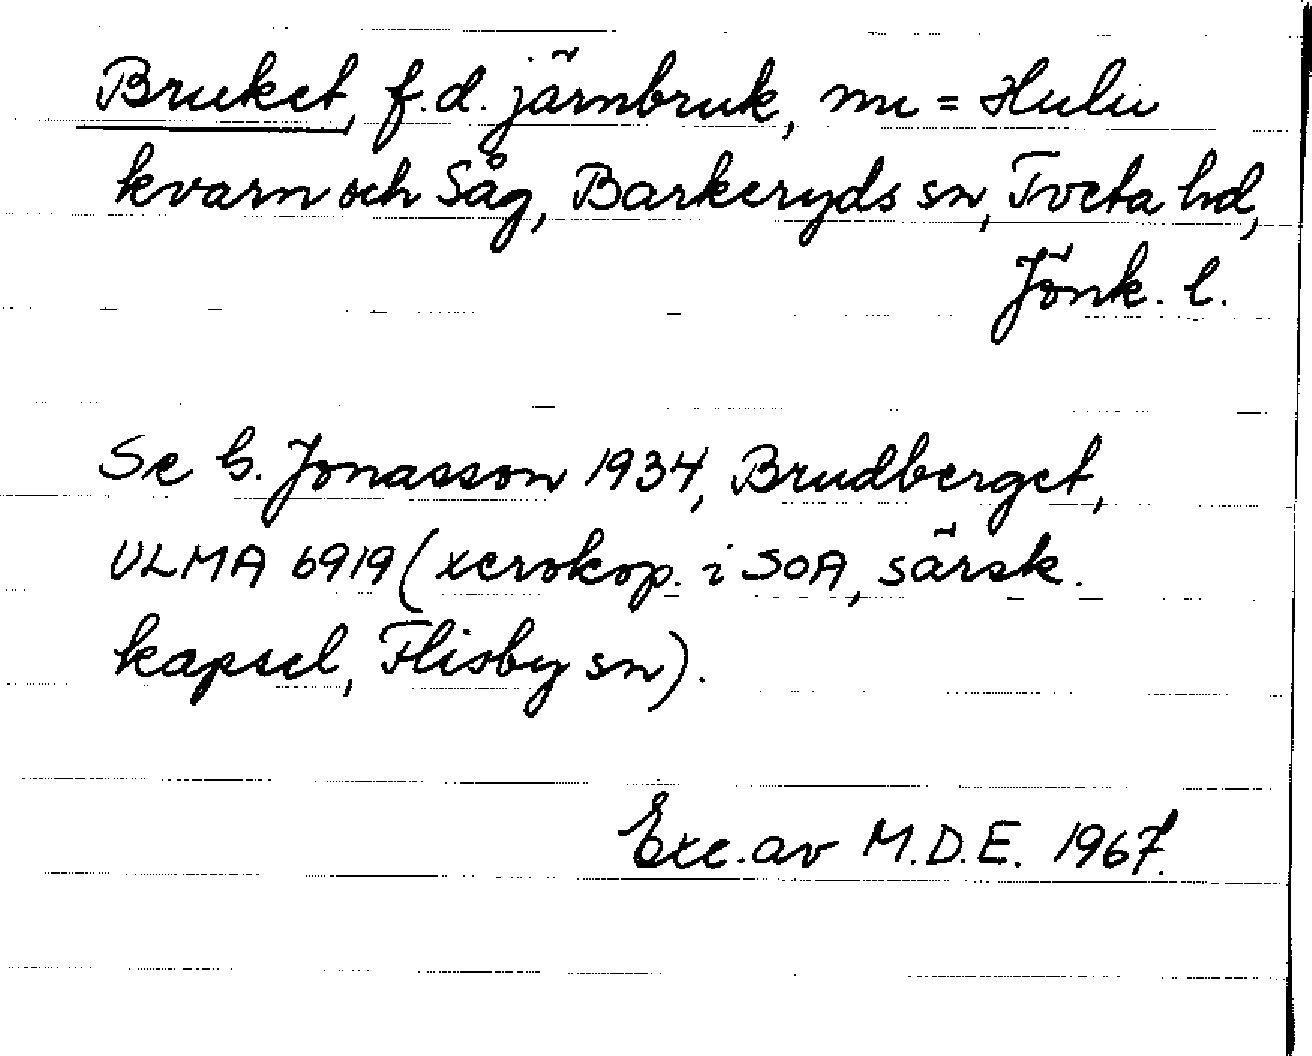 Bruket, f.d. järnbruk, nu = Hulu
kvarn och Såg, Barkeryds sn, Tveta hd,
Jönk. l.
Se G. Jonasson 1934, Brudberget,
ULMA 6919 (xerokop. i SOA, särsk.
kapsel, Flisby sn).
Exc. av M.D.E. 1967.